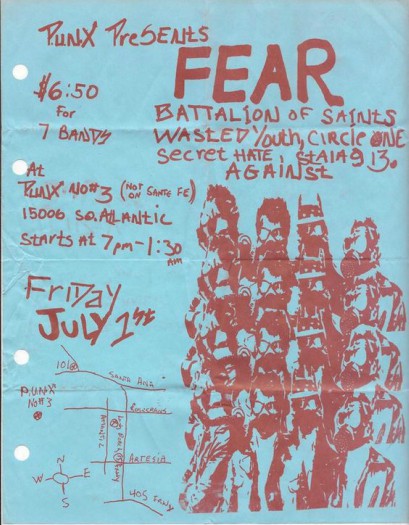 PUNX PreSENTS
FEAR
$6:50
for
7 BANDS
BATTALION OF SAINTS
WASTED Youth, CIRCLE ONE
Secret HATE, STALAG 13.
AGAINST
At
PUNX NO# 3 (NOT ON SANTE FE)
15006 SO. ATLANTIC
Starts AT 7pm-1:30 AM
FriDay
JULY 1st
SANTA ANA
P.U.N.X
NO#3
ROSECRANS
ATLANTIC
ARTESIA
405 FRWY
N
W
E
S